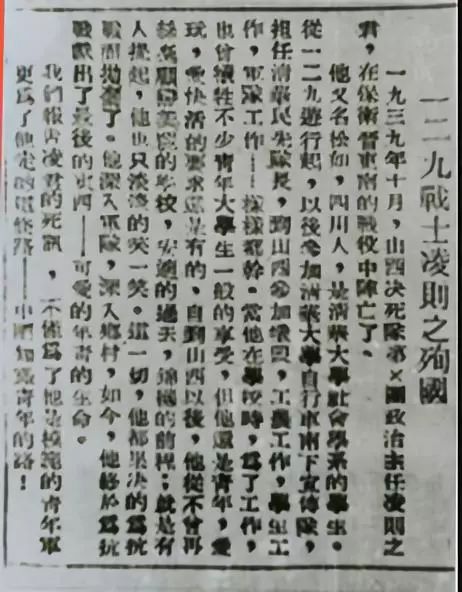 一二九戰士凌則之殉國
一九三九年十月，山西決死隊第×團政治主任凌則之
君，在保衛晉東南的戰役中陣亡了。
他又名松如，四川人，是清華大學社會學系的學生。
從一二九遊行起，以後參加清華大學自行車南下宣傳隊，
担任清華民先隊長，到山西參加犧盟，工農工作，學生工
作，軍隊工作——樣樣都幹。當他在學校時，爲了工作，
也曾犧牲不少青年大學生一般的享受，但他還是青年，愛
玩，愛快活的要求還是有的，自到山西以後，他從不曾再
美麗的學校，安適的過天，錦綉的前程；就是有
人提起，他也只淡淡的笑一笑。這一切，他都果决的爲抗
戰而拋棄了。他深入軍隊，深入鄉村，如今，他終於爲抗
戰獻出了最後的東西——可愛的年青的生命。
我們報吿凌君的死訊，不僅爲了他是模範的青年軍
更爲了他走的道路——中國知識青年的路！